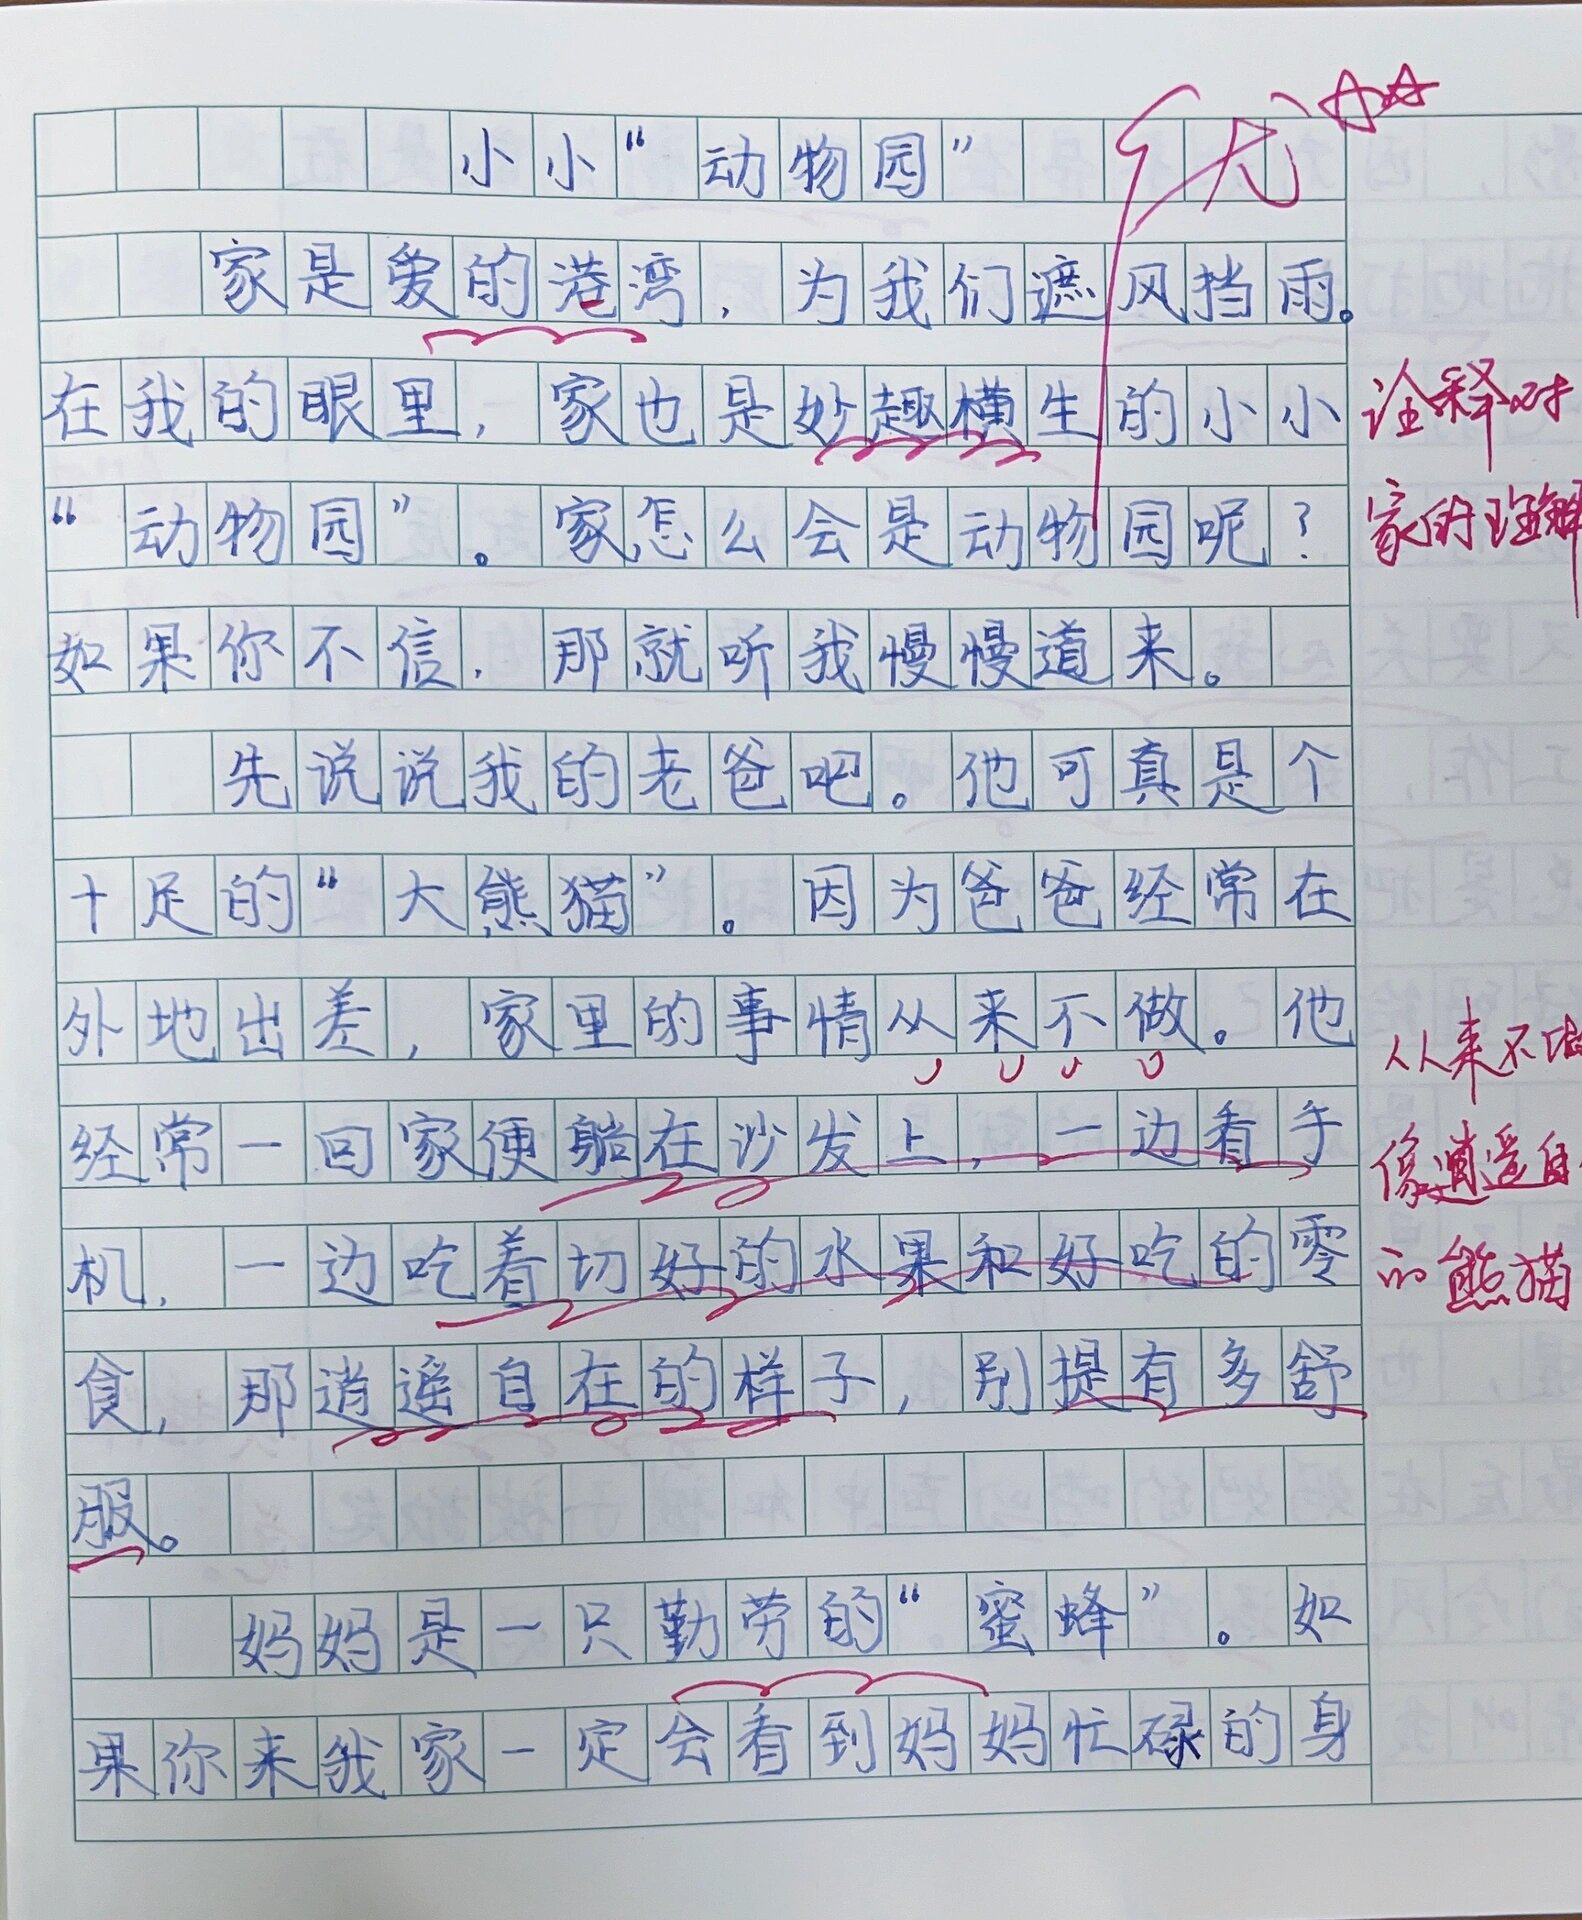 小小“动物园”
优
家是爱的港湾，为我们遮风挡雨。
在我的眼里，家也是妙趣横生的小小
诠释对
“动物园”。家怎么会是动物园呢？
家的理解
如果你不信，那就听我慢慢道来。
先说说我的老爸吧。他可真是个
十足的“大熊猫”。因为爸爸经常在
外地出差，家里的事情从来不做。他
从来不做
经常一回家便躺在沙发上，一边看手
像逍遥自
机，一边吃着切好的水果和好吃的零
的熊猫
食，那逍遥自在的样子，别提有多舒
服。
妈妈是一只勤劳的“蜜蜂”。如
果你来我家一定会看到妈妈忙碌的身